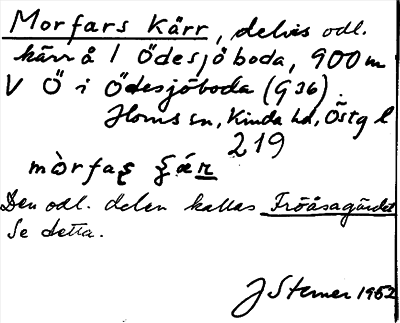 Morfars Kärr, delvis odl.
kärr å 1 Ödesjöboda, 900 m
V Ö i Ödesjöboda (G 36).
Horns sn, Kinda hd, Östg l
219
mòrfaʂ ʂár
Den odl. delen kallas Fröåsagärdet
Se detta.
J Sterner 1952